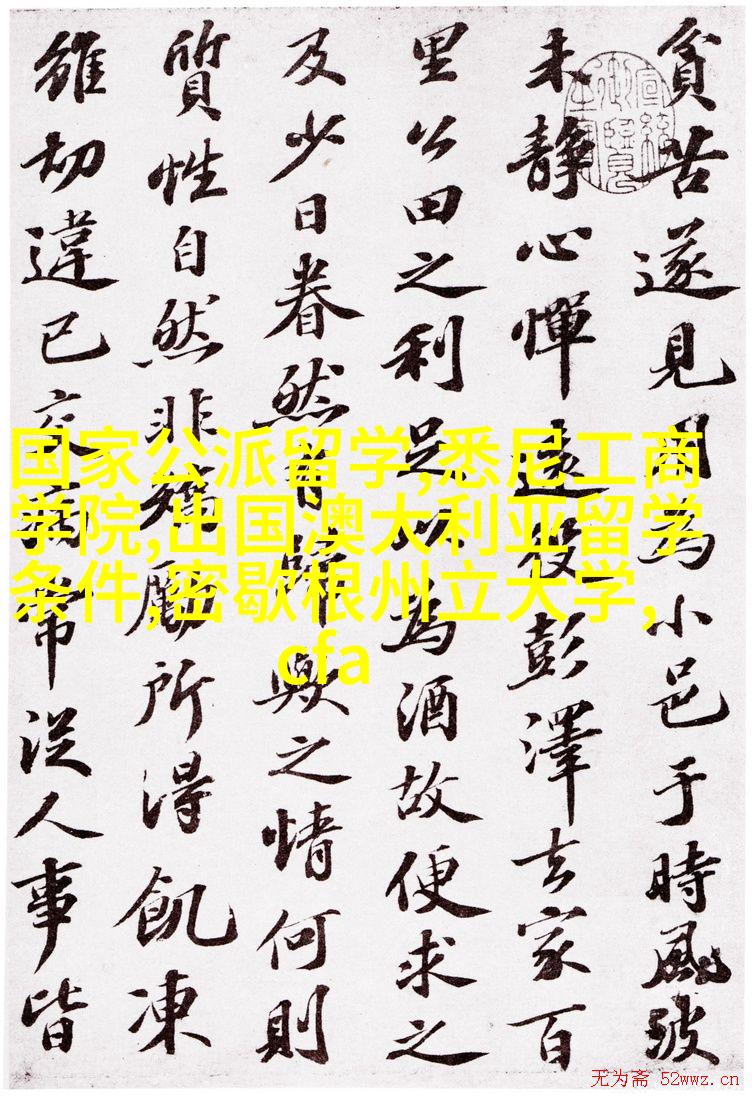 貧苦遂見用為小邑于時風波
未静心憚遠役彭澤去家百
里公田之利足以為酒故便求之
及少日眷然有歸歟之情何則
質性自然非矯厲所得飢凍
雖切違已交病常從人事皆
国家公派留学,悉尼工商
学院,出国澳大利亚留学
条件,密歇根州立大学,
cfa
无为斋 52wwz.cn